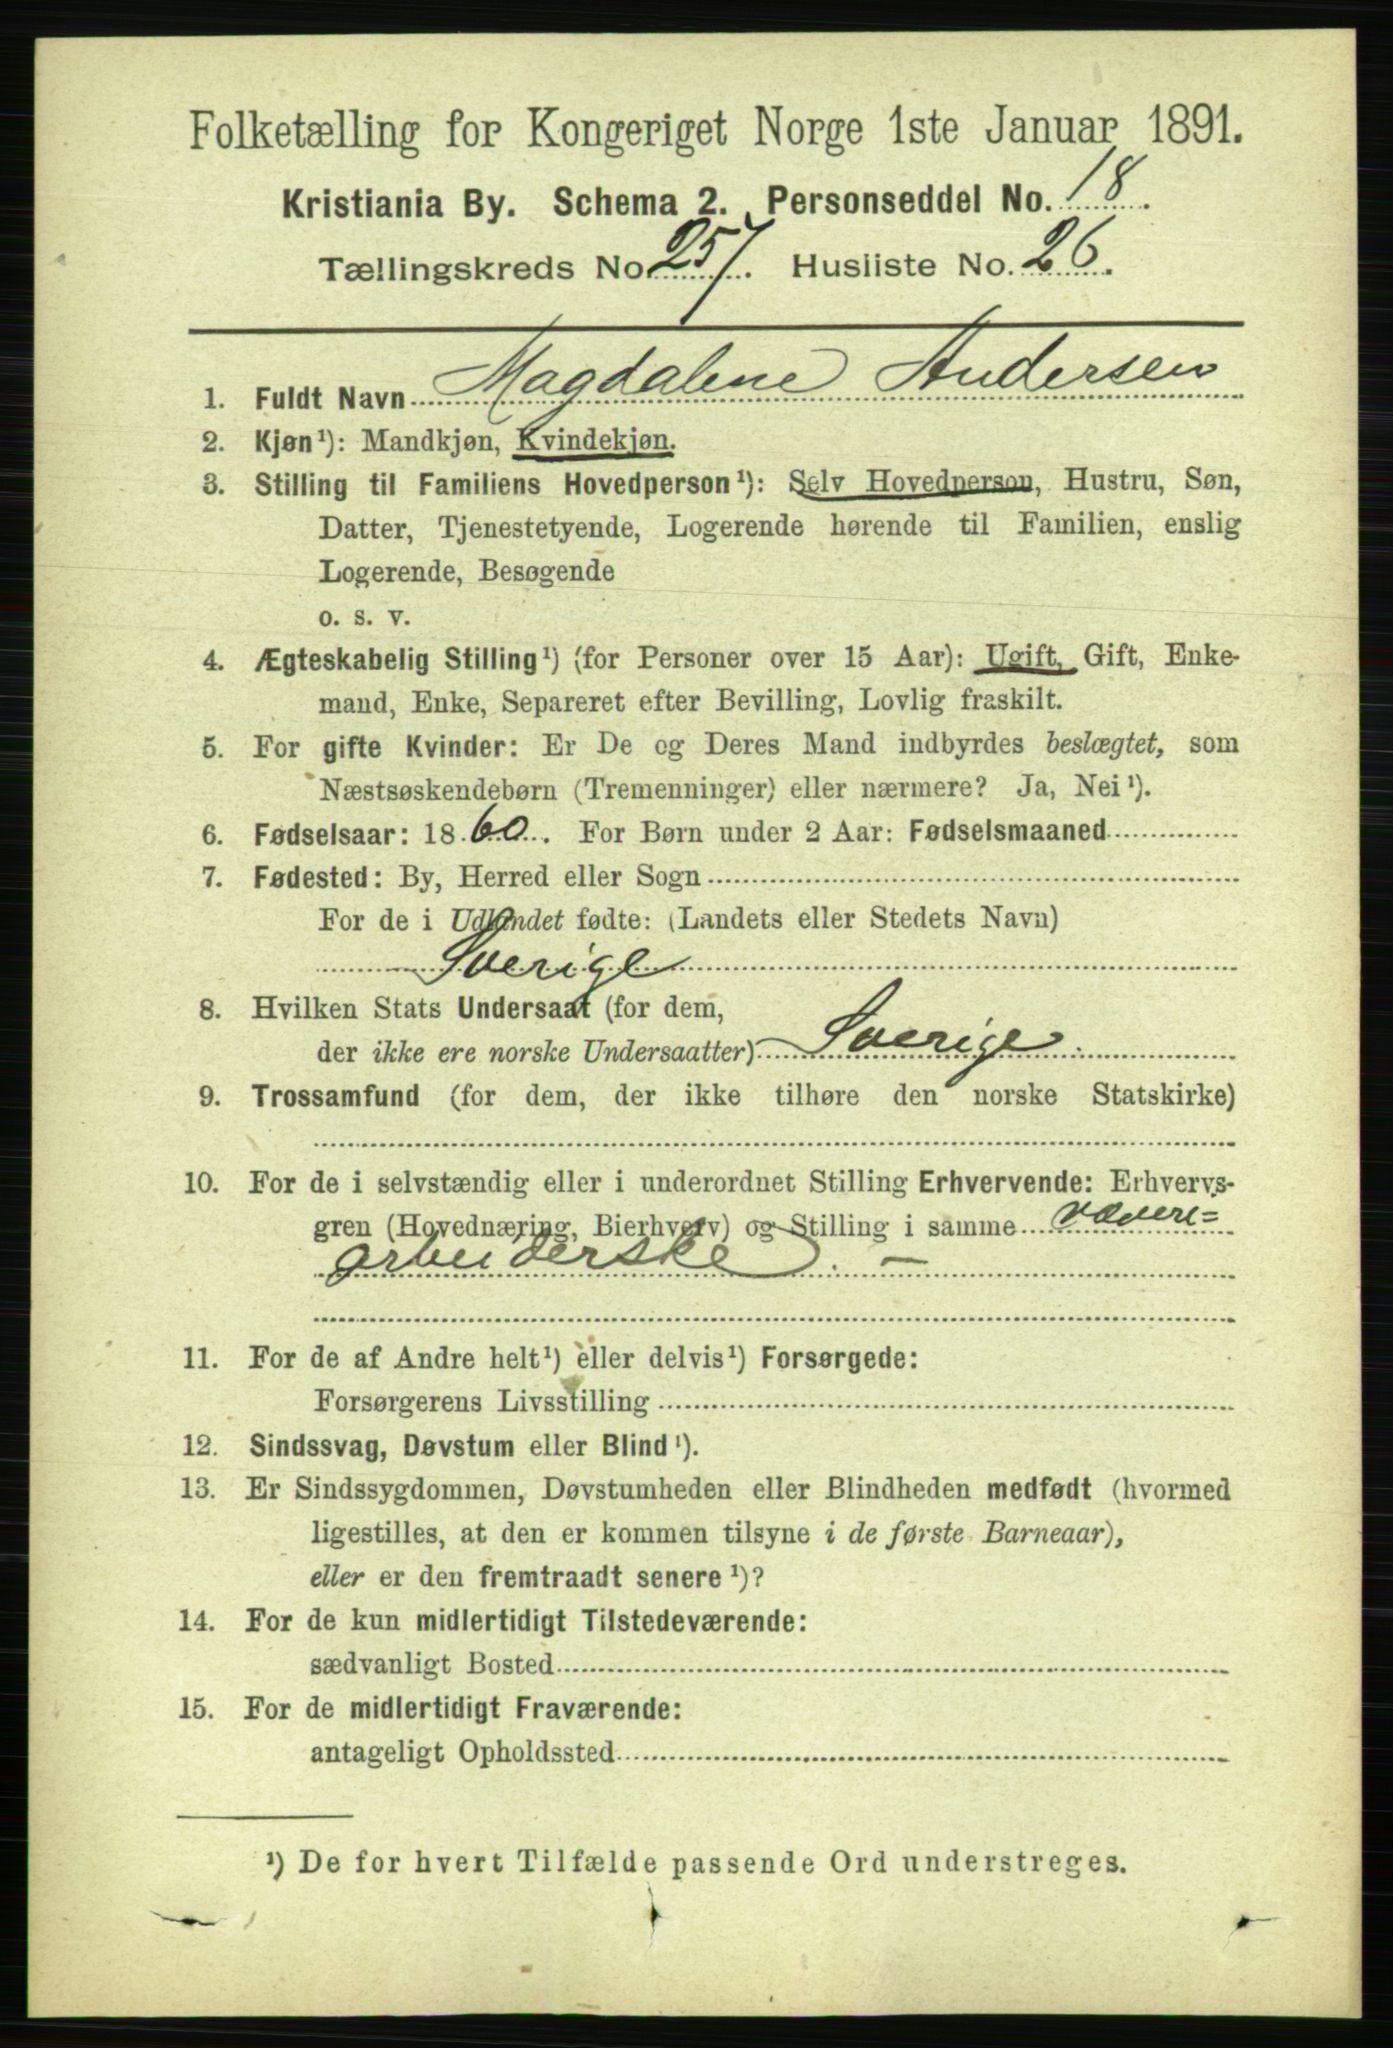 Folketælling for Kongeriget Norge 1ste Januar 1891.
Kristiania By. Schema 2. Personseddel No. 18.
Tællingskreds No. 257. Husliste No. 26.
1. Fuldt Navn Magdalene Andersen
2. Kjøn¹): Mandkjøn, Kvindekjøn.
3. Stilling til Familiens Hovedperson¹): Selv Hovedperson, Hustru, Søn,
Datter, Tjenestetyende, Logerende hørende til Familien, enslig
Logerende, Besøgende
o. s. v.
4. Ægteskabelig Stilling¹) (for Personer over 15 Aar): Ugift, Gift, Enke-
mand, Enke, Separeret efter Bevilling, Lovlig fraskilt.
5. For gifte Kvinder: Er De og Deres Mand indbyrdes beslægtet, som
Næstsøskendebørn (Tremenninger) eller nærmere? Ja, Nei¹).
6. Fødselsaar: 1860. For Børn under 2 Aar: Fødselsmaaned
7. Fødested: By, Herred eller Sogn
For de i Udlandet fødte: (Landets eller Stedets Navn)
Sverige
8. Hvilken Stats Undersaat (for dem,
der ikke ere norske Undersaatter) Sverige.
9. Trossamfund (for dem, der ikke tilhøre den norske Statskirke)
10. For de i selvstændig eller i underordnet Stilling Erhvervende: Erhvervs-
gren (Hovednæring, Bierhverv) og Stilling i samme væveri=
arbeiderske. —
11. For de af Andre helt¹) eller delvis¹) Forsørgede:
Forsørgerens Livsstilling
12. Sindssvag, Døvstum eller Blind¹).
13. Er Sindssygdommen, Døvstumheden eller Blindheden medfødt (hvormed
ligestilles, at den er kommen tilsyne i de første Barneaar),
eller er den fremtraadt senere¹)?
14. For de kun midlertidigt Tilstedeværende:
sædvanligt Bosted
15. For de midlertidigt Fraværende:
antageligt Opholdssted
¹) De for hvert Tilfælde passende Ord understreges.